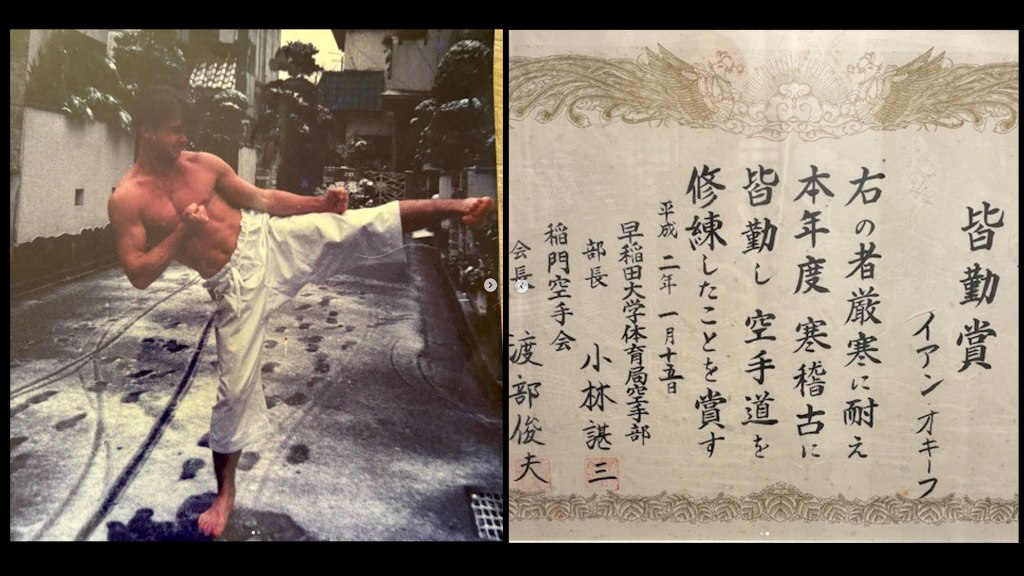 皆勤賞
イアン オキーフ
右の者厳寒に耐え
本年度 寒稽古に
皆勤し 空手道を
修練したことを賞す
平成 二年 一月十五日
早稲田大学体育局空手部
部長 小林諶三
稲門空手会
会長 渡部俊夫